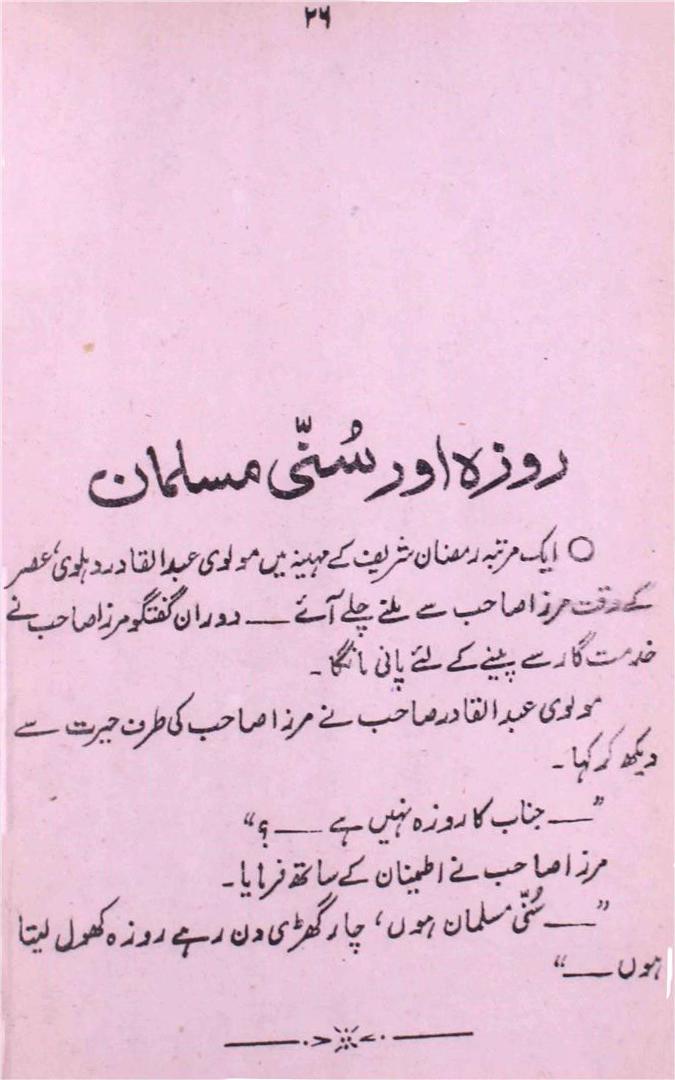 ۲۶
روزہ اور سُنّی مسلمان
○ ایک مرتبہ رمضان شریف کے مہینہ میں مولوی عبدالقادر دہلوی، عصر
کے وقت مرزا صاحب سے ملنے چلے آئے ــــ دوران گفتگو مرزا صاحب نے
خدمت گار سے پینے کے لئے پانی مانگا۔
مولوی عبدالقادر صاحب نے مرزا صاحب کی طرف حیرت سے
دیکھ کر کہا۔
”ــــ جناب کا روزہ نہیں ہے ــــ ؟“
مرزا صاحب نے اطمینان کے ساتھ فرمایا۔
”ــــ سُنّی مسلمان ہوں، چار گھڑی دن رہے روزہ کھول لیتا
ہوں ــــ“